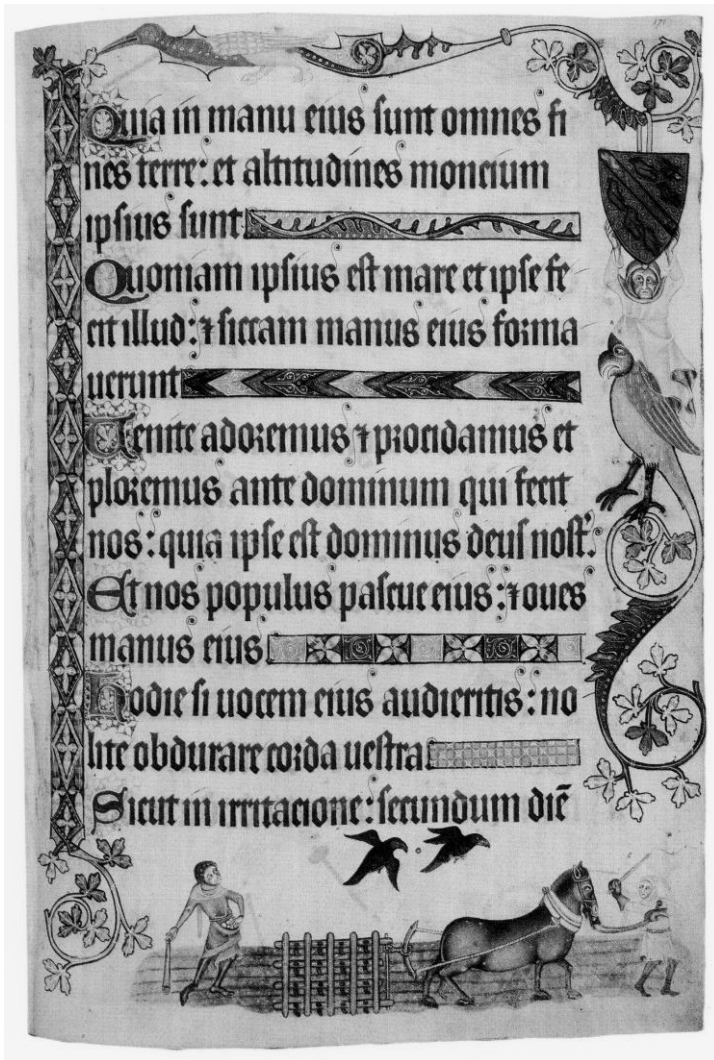 Quia in manu eius sunt omnes fi
nes terre: et altitudines moncium
ipsius sunt
Quoniam ipsius est mare et ipse fe
cit illud: ⁊ siccam manus eius forma
uerunt
Uenite adoremus ⁊ procidamus et
ploremus ante dominum qui fecit
nos: quia ipse est dominus deus nost'.
Et nos populus pascue eius: ⁊ oues
manus eius
Hodie si uocem eius audieritis: no
lite obdurare corda uestra
Sicut in irritacione: secundum diē